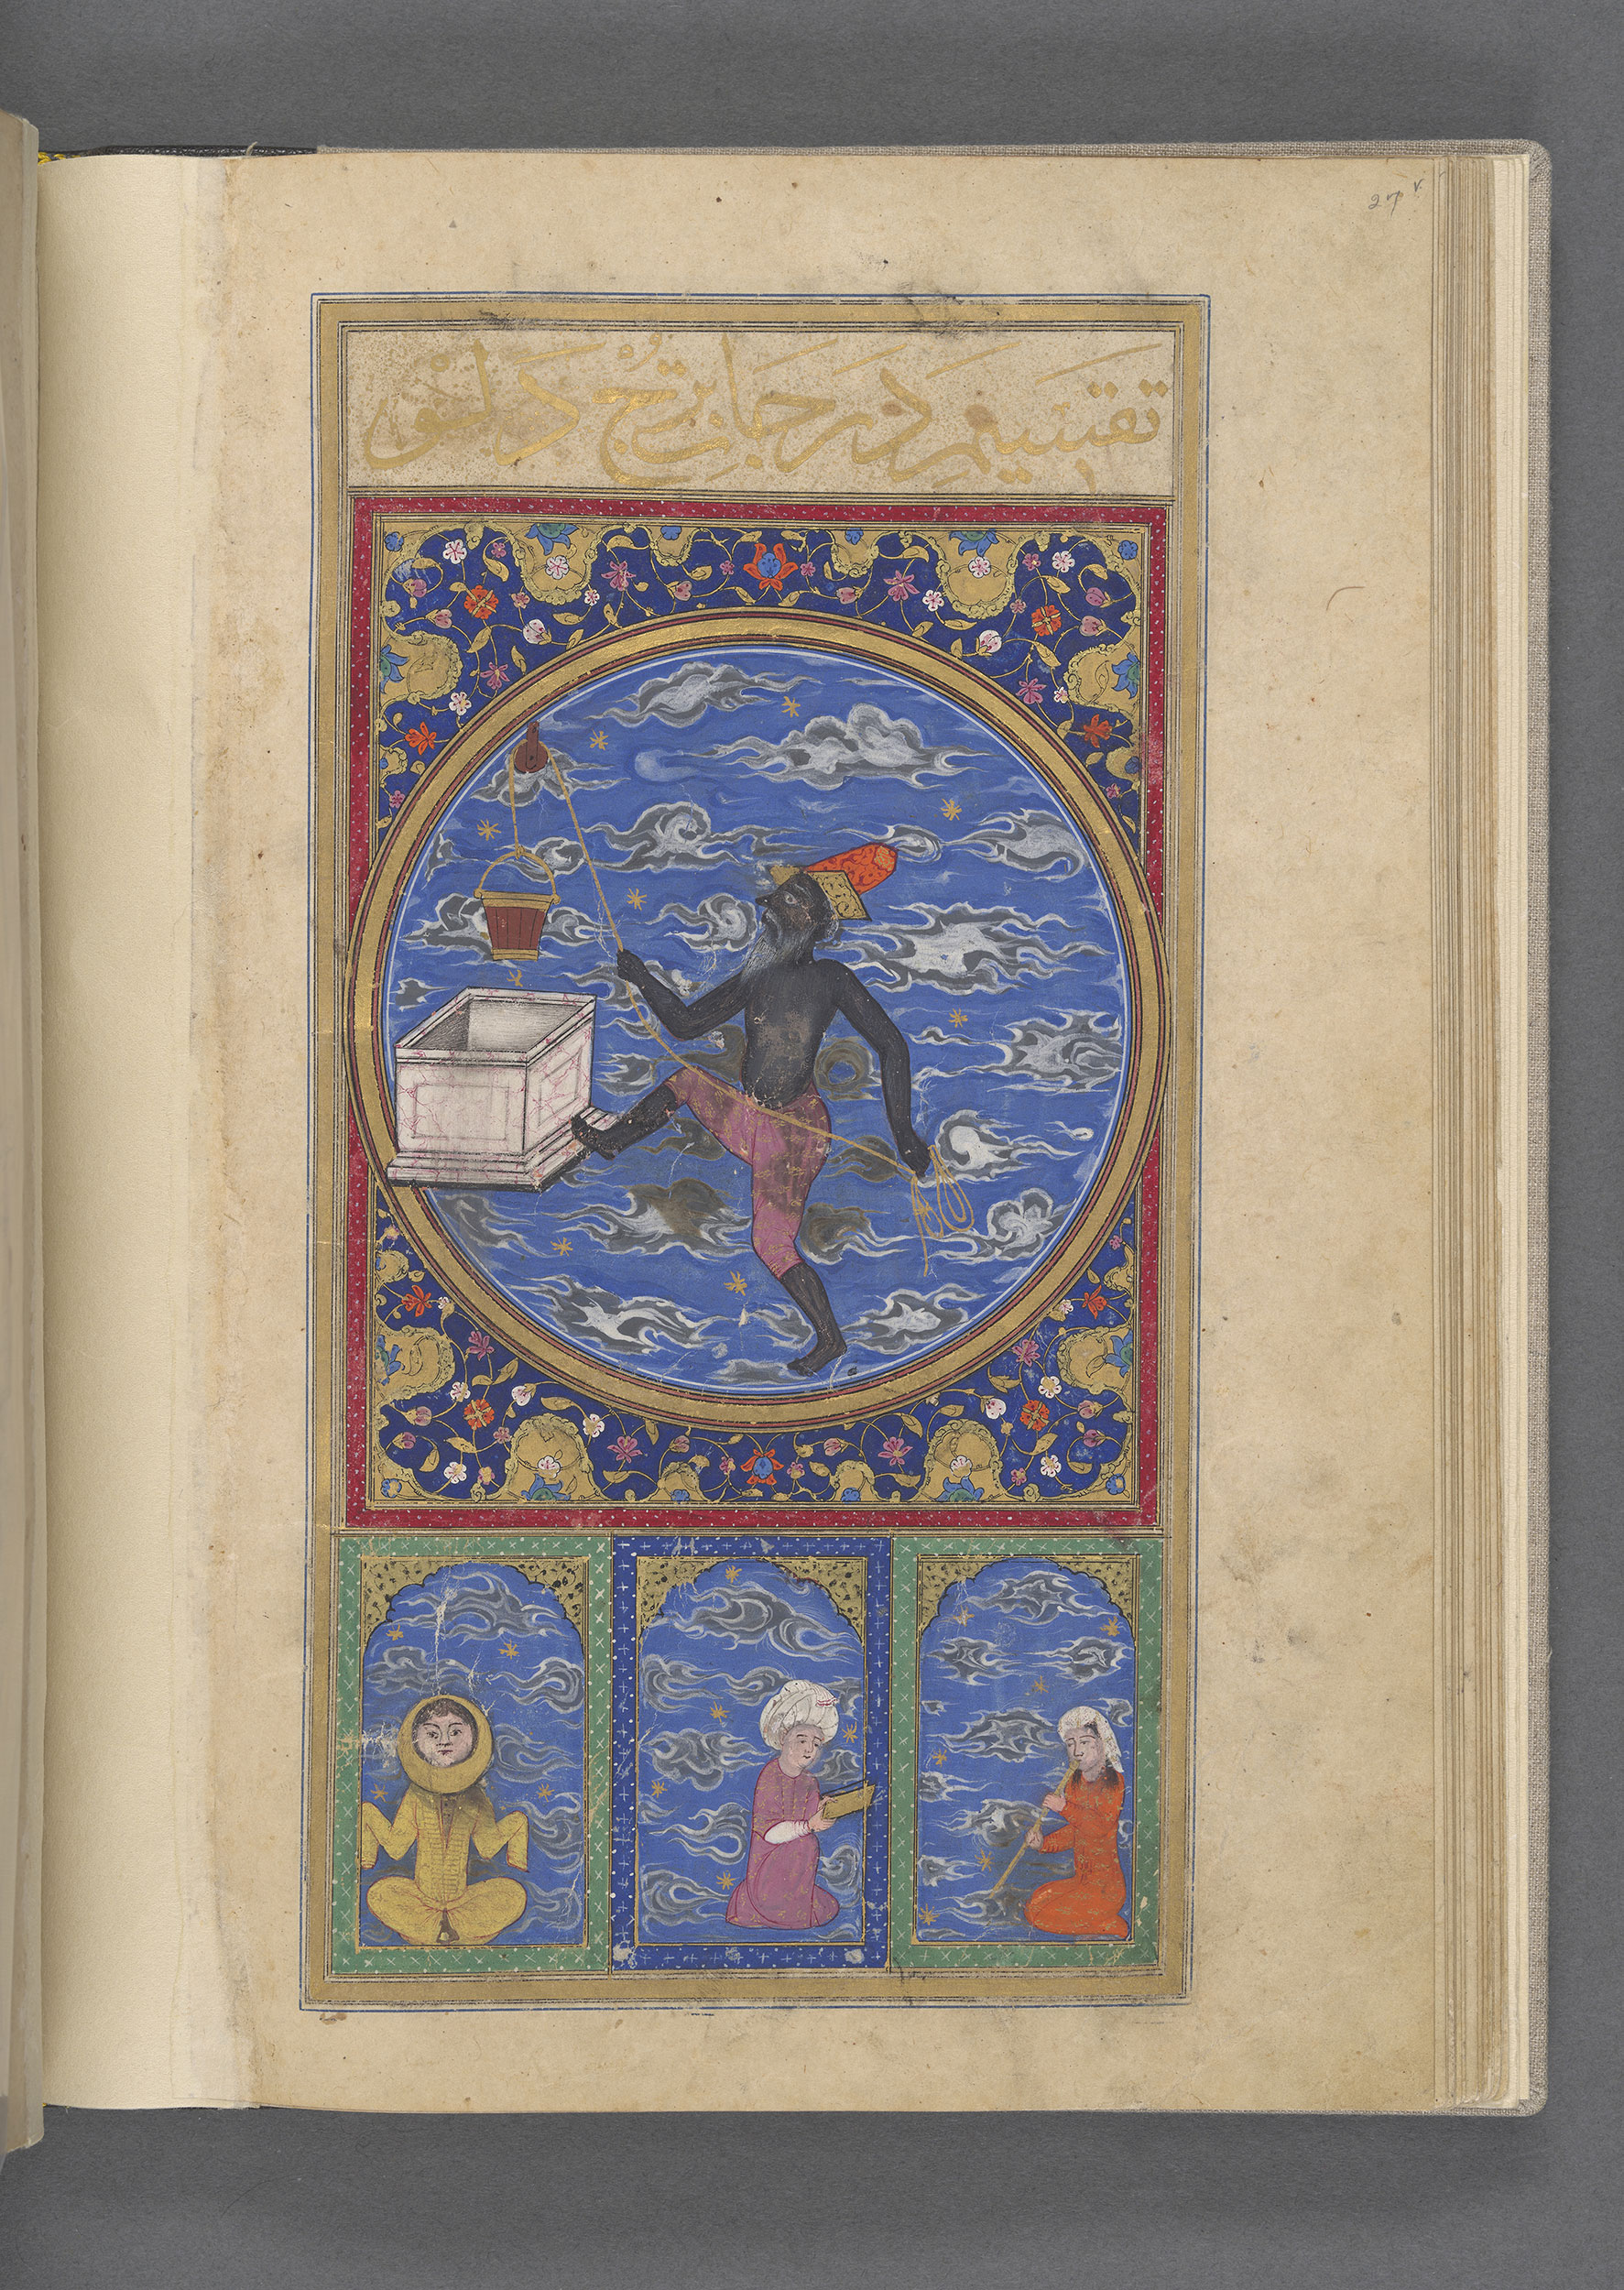 27v
تقسیم درجات برج دلو